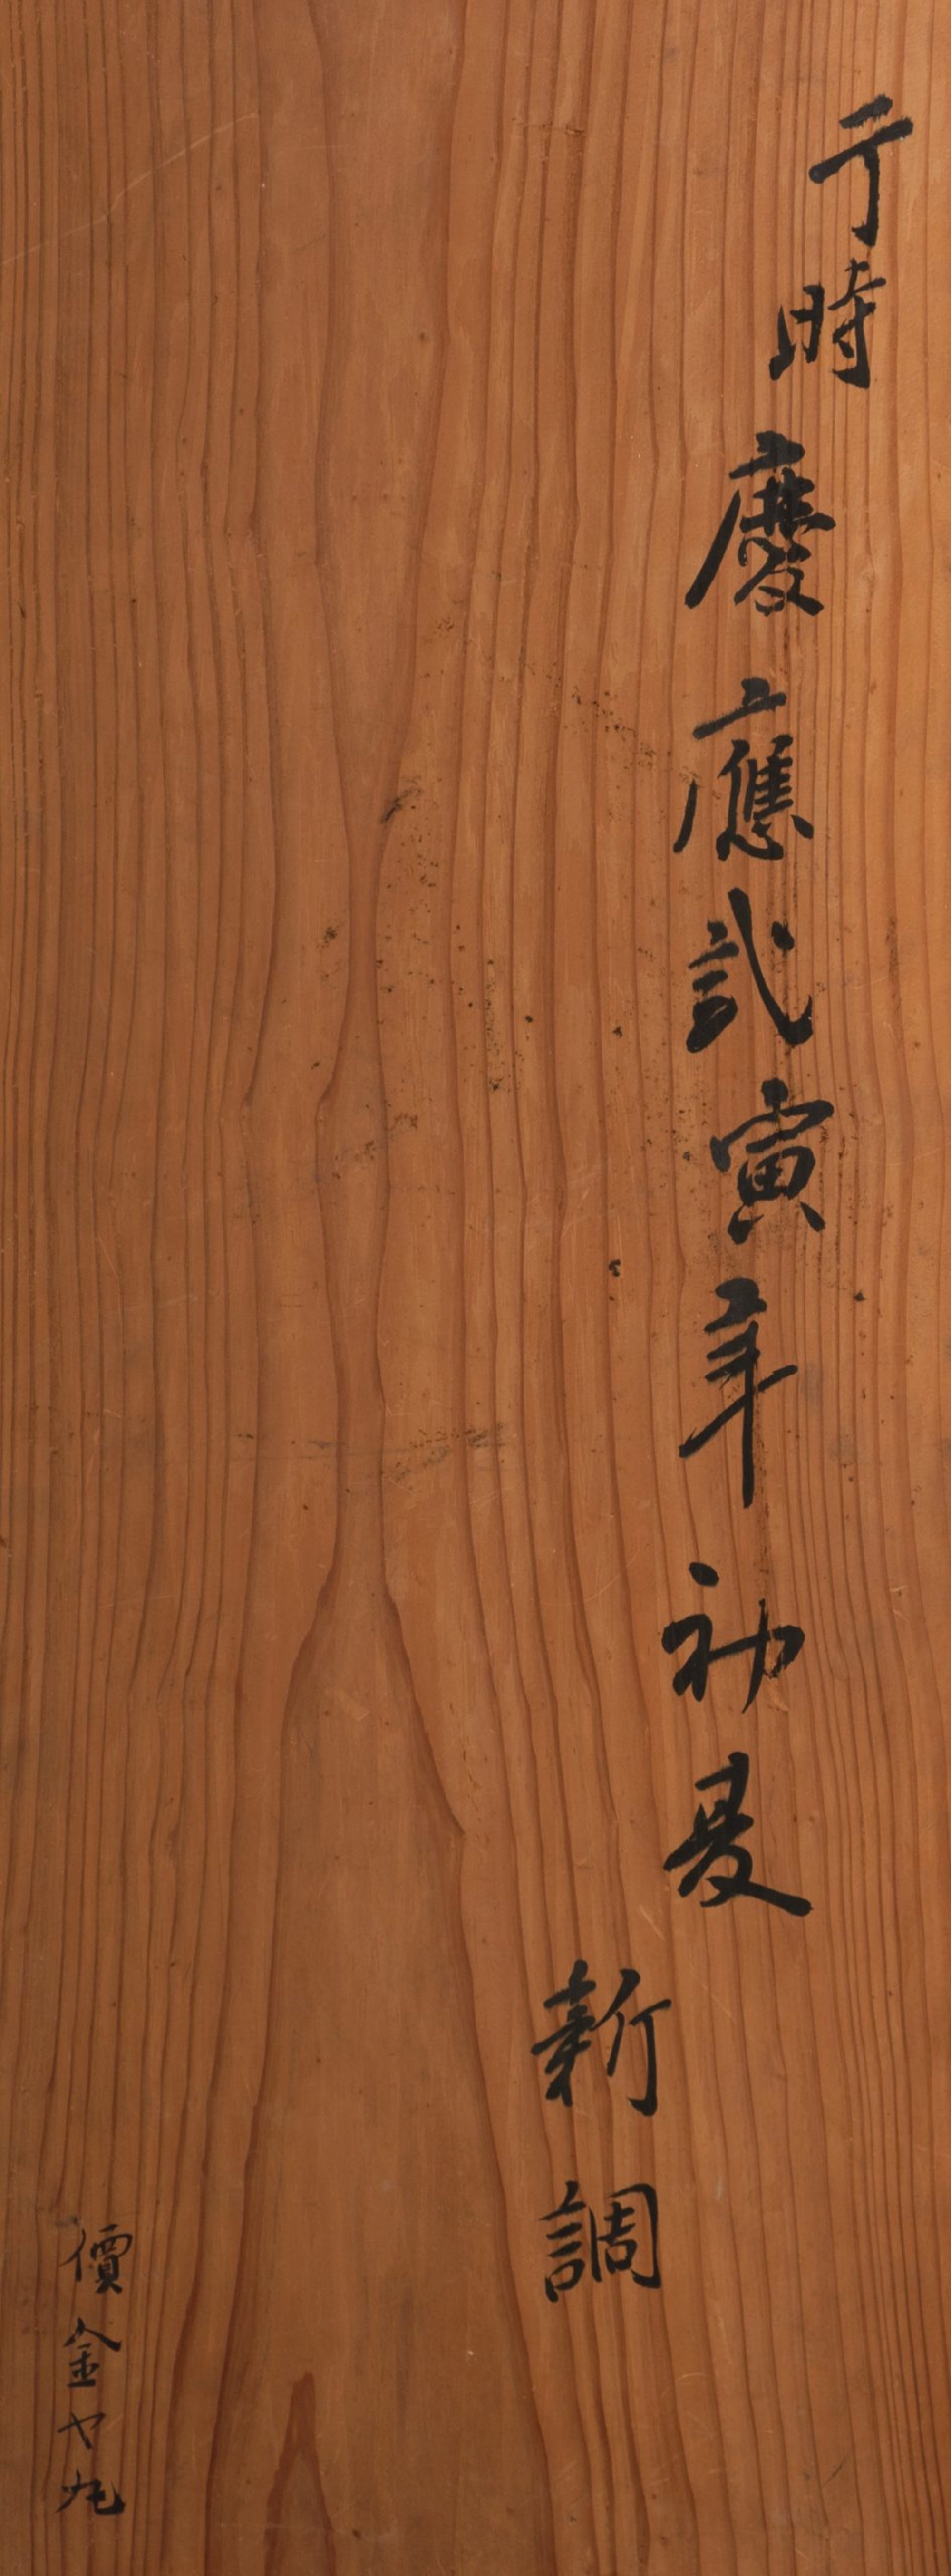 于時慶應貳寅年初夏
新調
價金